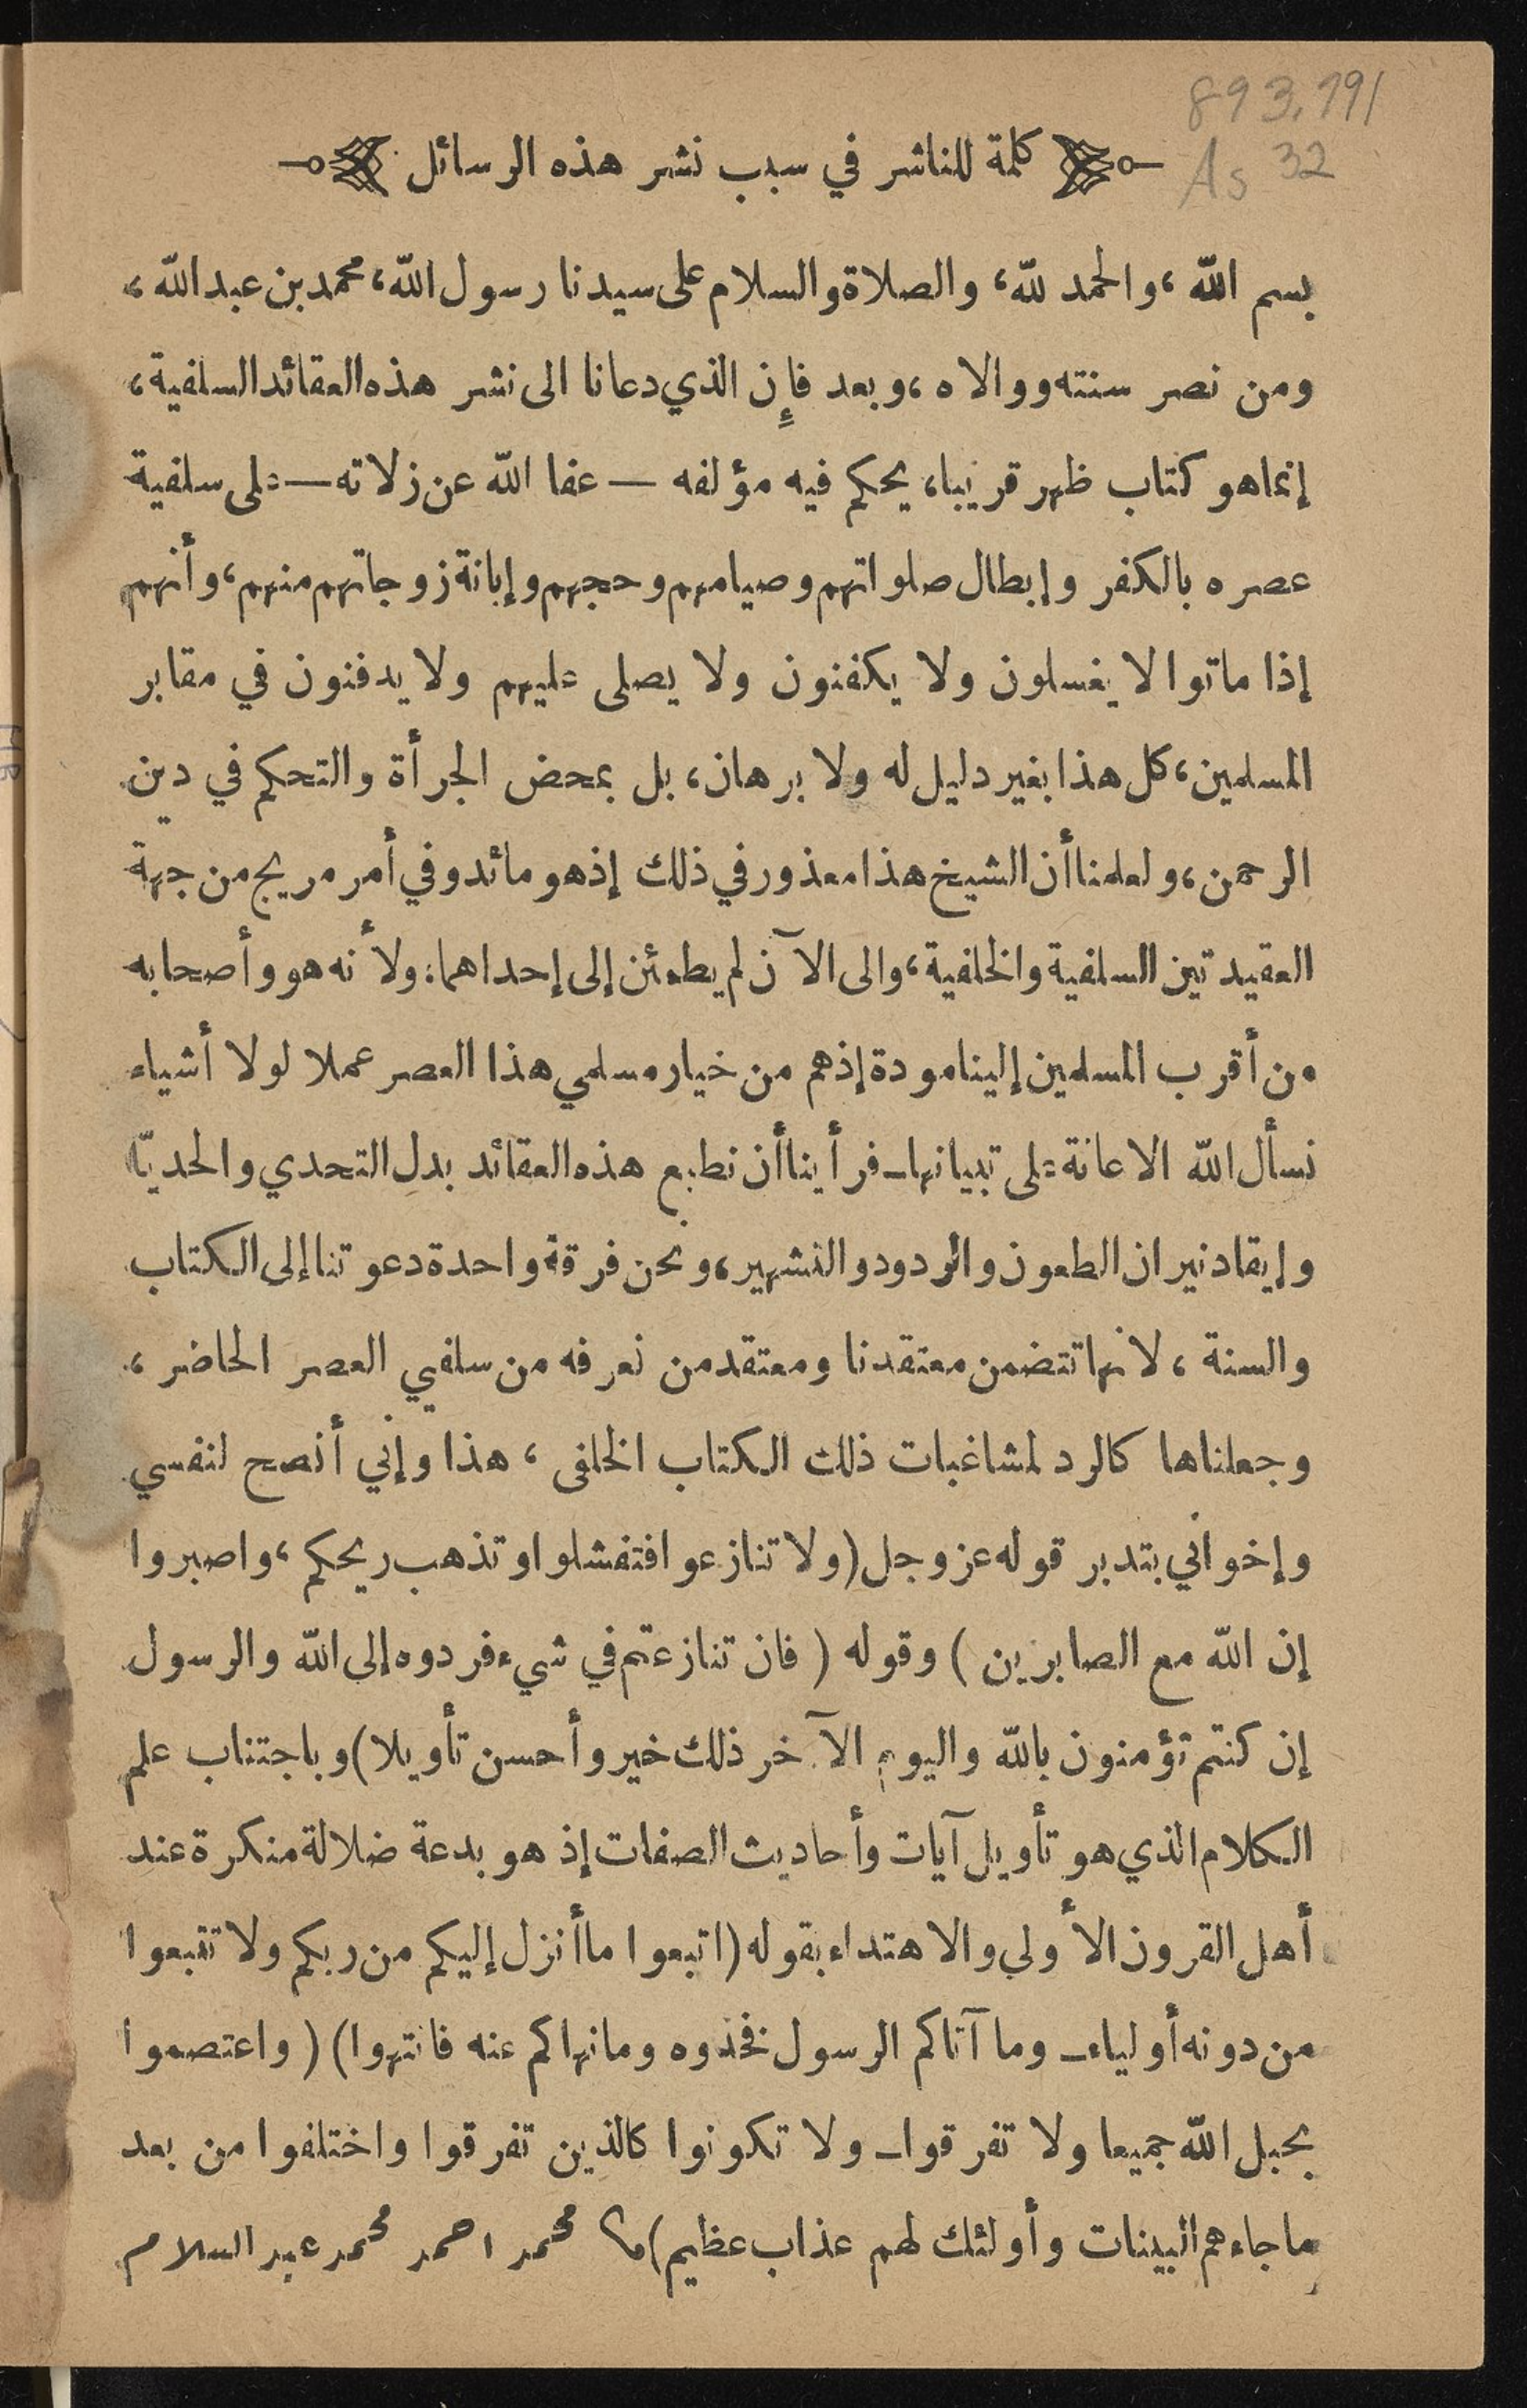 893.791
As 32
كلمة للناشر في سبب نشر هذه الرسائل
بسم الله، والحمد لله، والصلاة والسلام على سيدنا رسول الله، محمد بن عبد الله،
ومن نصر سنته ووالاه، وبعد فإِن الذي دعانا الى نشر هذه العقائد السلفية،
إنما هو كتاب ظهر قريبا، يحكم فيه مؤلفه — عفا الله عن زلاته — على سلفية
عصره بالكفر وإبطال صلواتهم وصيامهم وحجهم وإبانة زوجاتهم منهم، وأنهم
إذا ماتوا لا يغسلون ولا يكفنون ولا يصلى عليهم ولا يدفنون في مقابر
المسلمين، كل هذا بغير دليل له ولا برهان، بل بمحض الجرأة والتحكم في دين
الرحمن، ولعلمنا أن الشيخ هذا معذور في ذلك إذ هو مائد وفي أمر مريج من جهة
العقيدتين السلفية والخلفية، والى الآن لم يطمئن إلى إحداهما، ولأنه هو وأصحابه
من أقرب المسلمين إلينا مودة إذ هم من خيار مسلمي هذا العصر عملا لولا أشياء
نسأل الله الاعانة على تبيانها ــ فرأينا أن نطبع هذه العقائد بدل التحدي والحديّا
وإيقاد نيران الطعون والردود والتشهير، ونحن فرقة واحدة دعوتنا إلى الكتاب
والسنة، لانها تتضمن معتقدنا ومعتقد من نعرفه من سلفيي العصر الحاضر،
وجعلناها كالرد لمشاغبات ذلك الكتاب الخلفى، هذا وإني أنصح لنفسي
وإخواني بتدبر قوله عز وجل (ولا تنازعوا فتفشلوا وتذهب ريحكم، واصبروا
إن الله مع الصابرين) وقوله (فان تنازعتم في شيء فردوه إلى الله والرسول
إن كنتم تؤمنون بالله واليوم الآخر ذلك خير وأحسن تأويلا) وباجتناب علم
الكلام الذي هو تأويل آيات وأحاديث الصفات إذ هو بدعة ضلالة منكرة عند
أهل القرون الأولي والاهتداء بقوله (اتبعوا ما أنزل إليكم من ربكم ولا تتبعوا
من دونه أولياء ــ وما آتاكم الرسول فخذوه وما نهاكم عنه فانتهوا) (واعتصموا
بحبل الله جميعا ولا تفرقوا ــ ولا تكونوا كالذين تفرقوا واختلفوا من بعد
ما جاءهم البينات وأولئك لهم عذاب عظيم) محمد احمد محمد عبد السلام